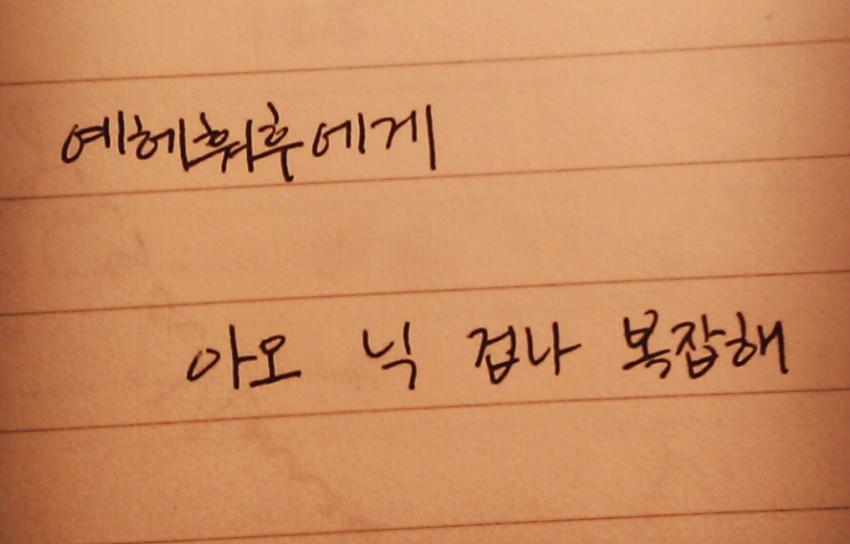 예헤훠후에게
아오 닉 겁나 복잡해